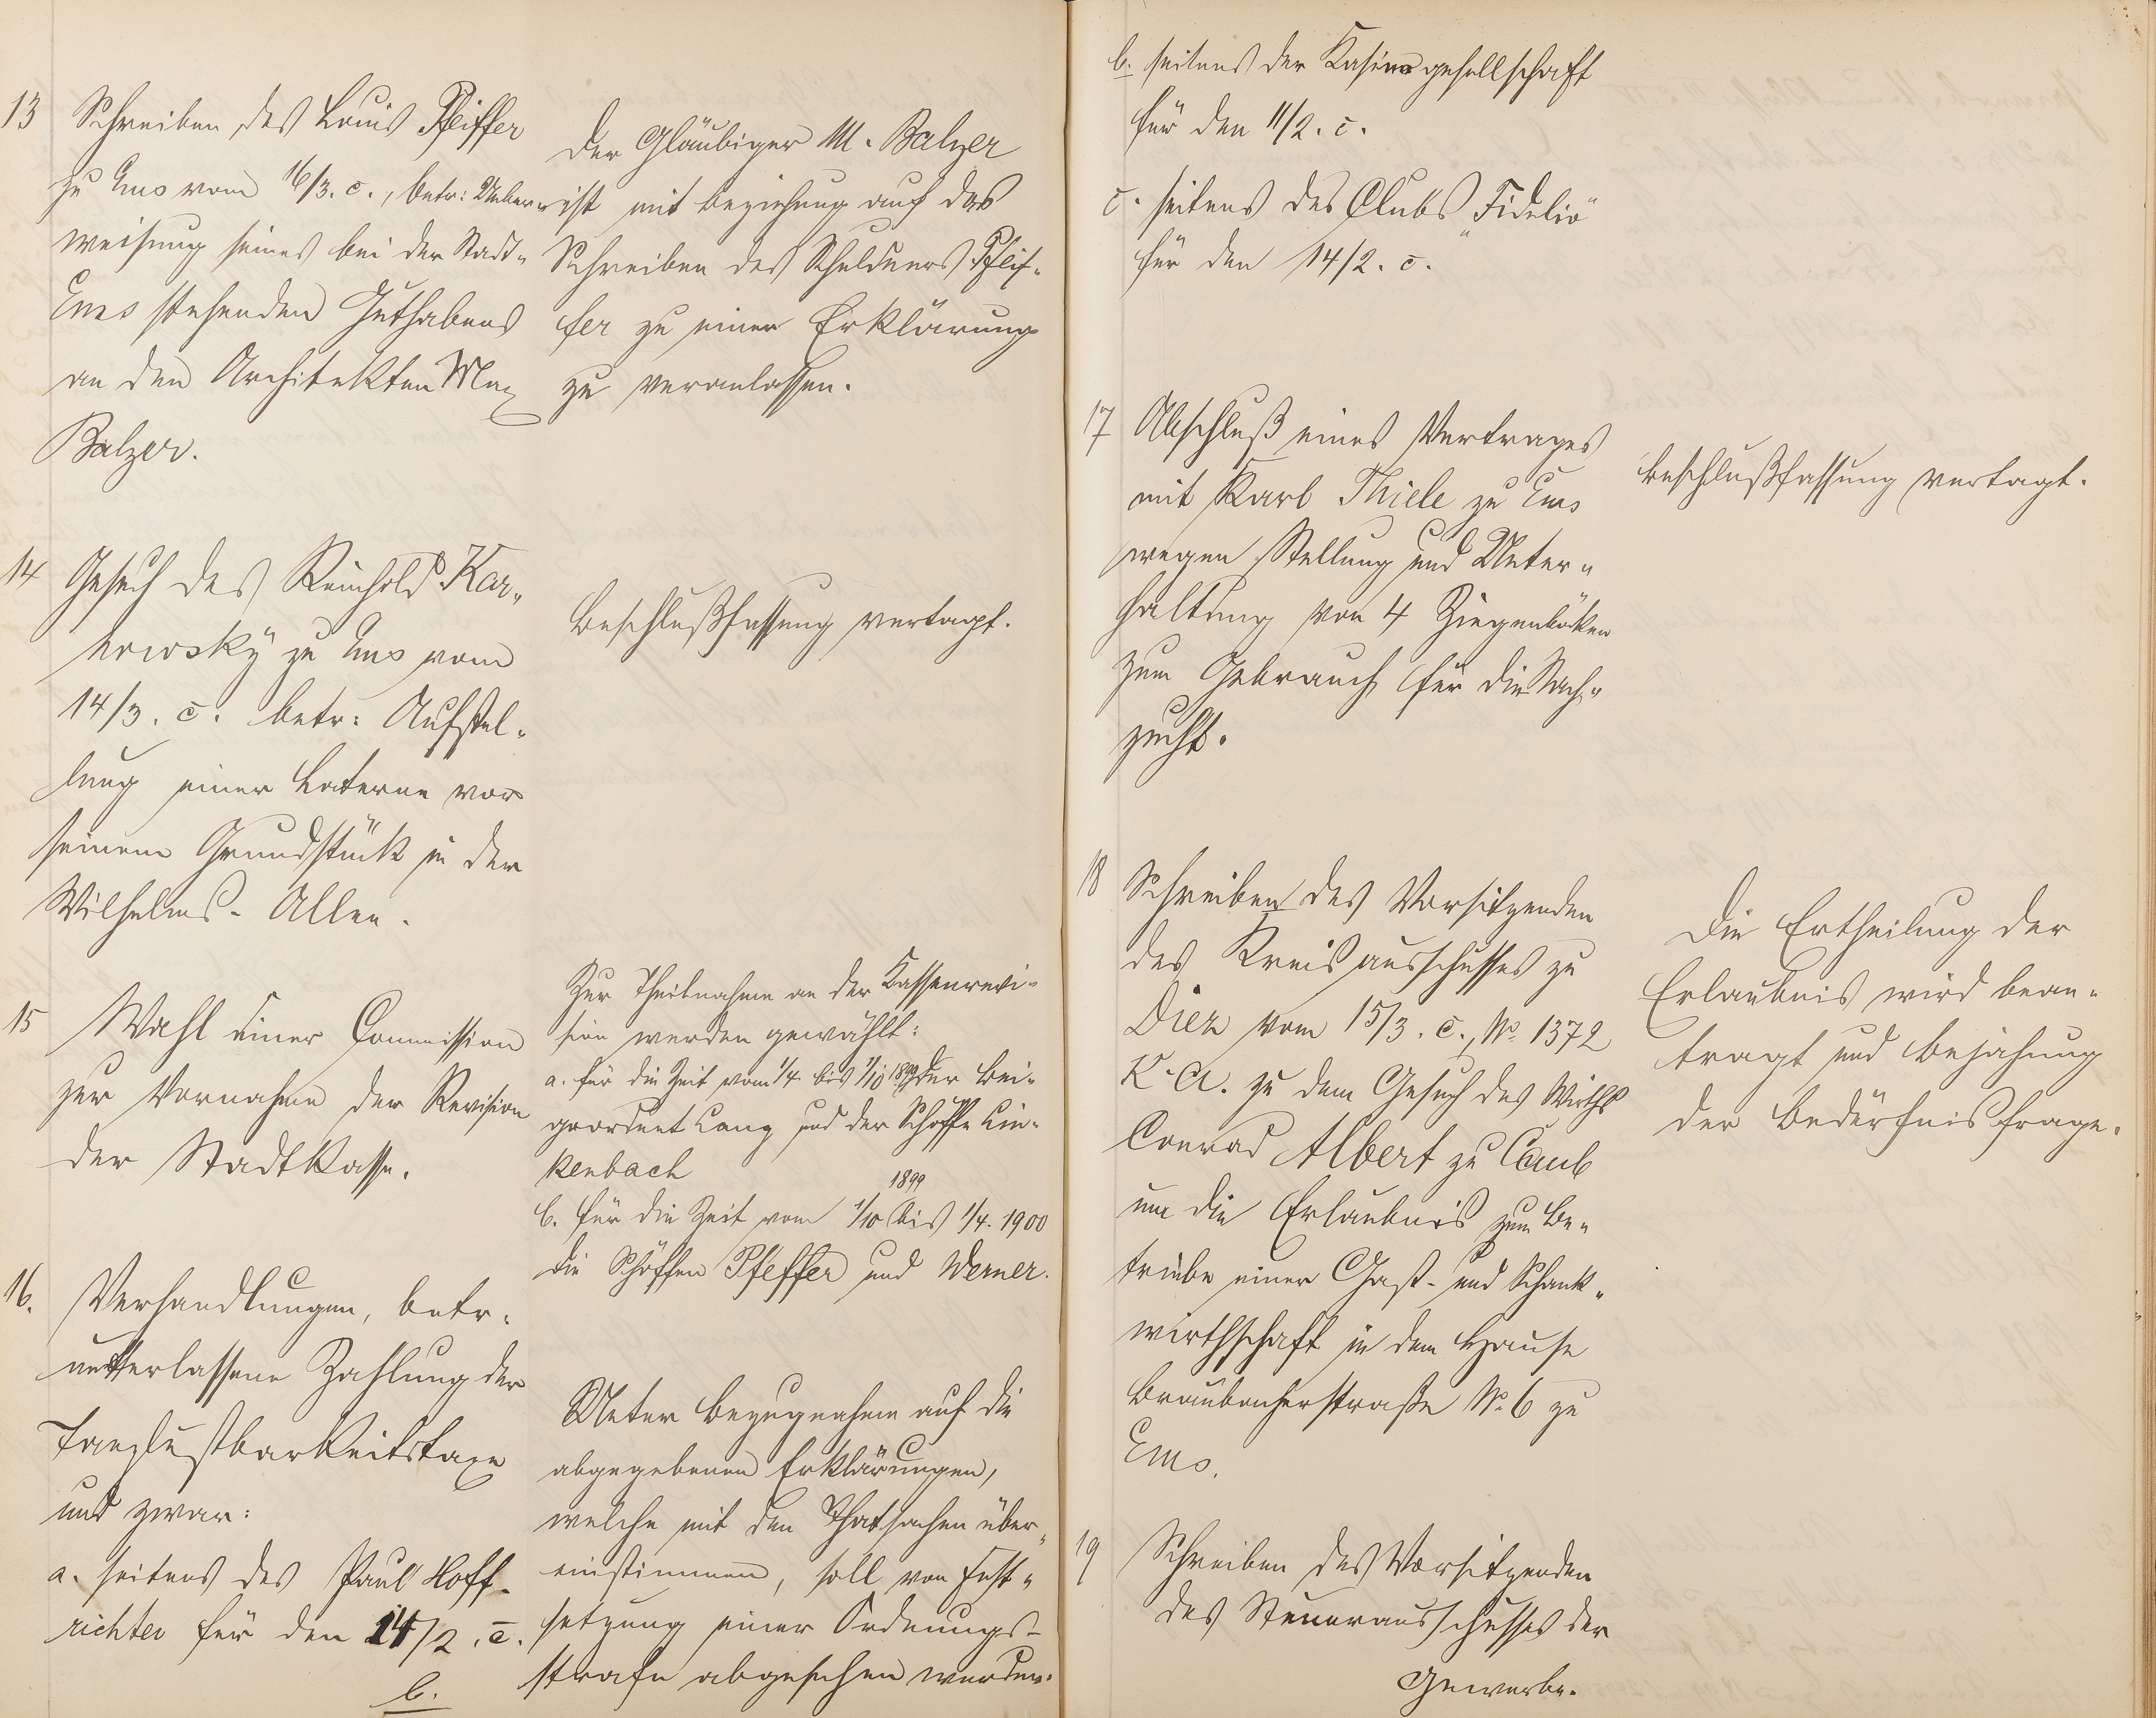 13 Schreiben des Louis Pfeiffer
zu Ems vom 16/3. c., betr: Ueber-
weisung seines bei der Stadt-
Ems stehenden Guthabens
an den Architekten Max
Balzer.
Der Gläubiger M. Balzer
ist mit Beziehung auf das
Schreiben des Schuldners Pfeif-
fer zu einer Erklärung
zu veranlassen.
14 Gesuch des Reinhold Kar-
nowsky zu Ems vom
14/3. c. betr: Aufstel-
lung einer Laterne vor
seinem Grundstück in der
Wilhelms-Allee.
Beschlußfassung vertagt.
15 Wahl einer Commission
zur Vornahme der Revision
der Stadtkasse.
Zur Theilnahme an der Kassenrevi-
sion werden gewählt:
a. für die Zeit vom 1/4. bis 1/10 1899 der Bei-
geordnet Lang und der Schöffe Lin-
kenbach
b. für die Zeit vom 1/10 1899 bis 1/4. 1900
die Schöffen Pfeffer und Werner.
16. Verhandlungen, betr.
unterlassene Zahlung der
Tanzlustbarkeitstaxe
und zwar:
a. seitens des Paul Hoff-
richter für den 14/2. c.
b.
Unter Bezugnahme auf die
abgegebenen Erklärungen,
welche mit den Thatsachen über-
einstimmen, soll von Fest-
setzung einer Ordnungs-
strafe abgesehen werden.
b. seitens der Kasinogesellschaft
für den 11/2. c.
c. seitens des Clubs „Fidelio"
für den 14/2. c.
17 Abschluß eines Vertrages
mit Karl Thiele zu Ems
wegen Stellung und Unter-
haltung von 4 Ziegenböcken
zum Gebrauch für die Nach-
zucht.
Beschlußfassung vertagt.
18 Schreiben des Vorsitzenden
des Kreisausschusses zu
Diez vom 15/3. c., No. 1372
K. A. zu dem Gesuch des Wirths
Conrad Albert zu Caub
um die Erlaubnis zum Be-
triebe einer Gast- und Schank-
wirthschaft in dem Hause
Braubacherstraße No. 6 zu
Ems.
Die Ertheilung der
Erlaubnis wird bean-
tragt und Bejahung
der Bedürfnisfrage.
19 Schreiben des Vorsitzenden
des Steuerausschusses der
Gewerbe-